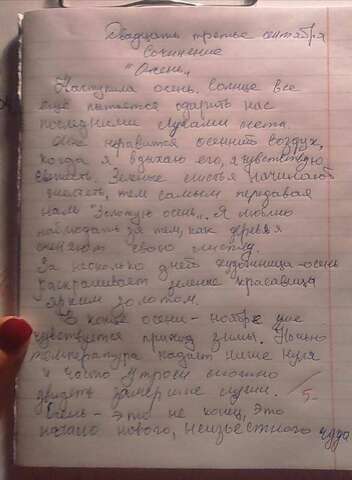 Двадцать третье сентября
Сочинение
"Осень".
Наступила осень. Солнце все
еще пытается одарить нас
последними лучами лета.
Мне нравится осенний воздух,
когда я вдыхаю его, я чувствую
свежесть. Зеленые листья начинают
желтеть, тем самым передавая
нам "Золотую осень". Я люблю
наблюдать за тем, как деревья
свою листву.
За несколько дней художница-осень
раскрашивает зеленые красавицы
ярким золотом.
В конце осени - ноябре уже
чувствуется приход зимы. Ночью
температура падает ниже нуля
и часто утром можно
увидеть замерзшие лужи.
Осень - это не конец, это
начало нового, неизвестного чуда
5-